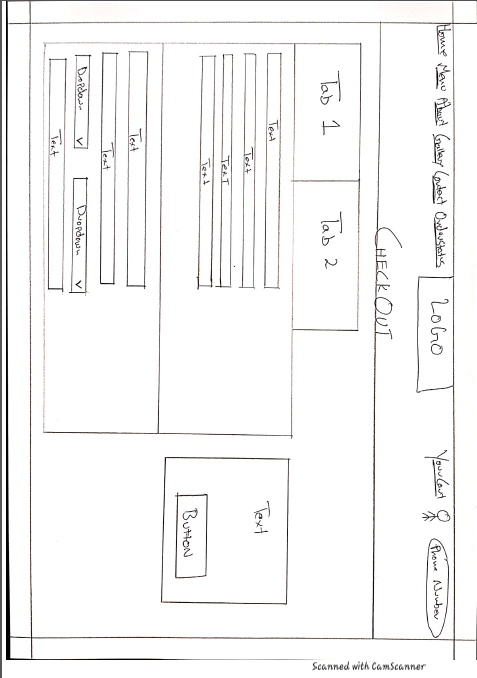 Home Menu About Gallery Contact Orderstatus
LOGO
Your Cart
Phone Number
CHECKOUT
Tab 1
Tab 2
Text
Text
Text
Text
Text
Text
Dropdown
Dropdown
Text
Text
BUTTON
Scanned with CamScanner